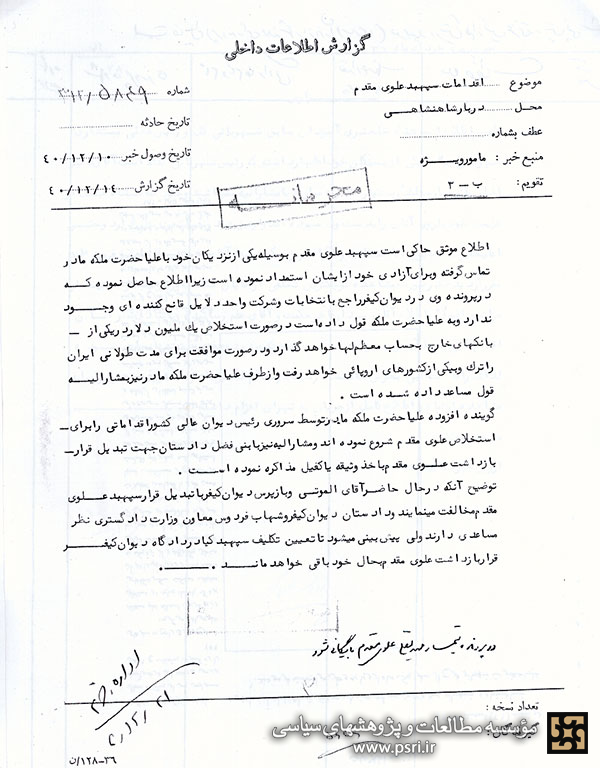 گزارش اطلاعات داخلی
موضوع اقدامات سپهبد علوی مقدم
شماره ۳۱۲/۵۸۴۹
محل دربار شاهنشاهی
تاریخ حادثه
عطف بشماره
تاریخ وصول خبر ۴۰/۱۲/۱۰
منبع خبر : مامور ویژه
تاریخ گزارش ۴۰/۱۲/۱۴
تقویم : ب - ۲
محرمانه
اطلاع موثق حاکی است سپهبد علوی مقدم بوسیله یکی از نزدیکان خود با علیا حضرت ملکه مادر
تماس گرفته و برای آزادی خود از ایشان استمداد نموده است زیرا اطلاع حاصل نموده که
در پرونده وی در دیوان کیفر راجع بانتخابات و شرکت واحد دلایل قانع کننده ای وجود
ندارد و به علیا حضرت ملکه قول داده است در صورت استخلاص یک ملیون دلار در یکی از
بانکهای خارج بحساب معظم لها خواهد گذارد و در صورت موافقت برای مدت طولانی ایران
را ترک و بیکی از کشورهای اروپائی خواهد رفت و از طرف علیا حضرت ملکه مادر نیز بمشارالیه
قول مساعد داده شده است .
گوینده افزوده علیا حضرت ملکه مادر توسط سروری رئیس دیوان عالی کشور اقداماتی را برای
استخلاص علوی مقدم شروع نموده اند و مشارالیه نیز با بنی فضل دادستان جهت تبدیل قرار
بازداشت علوی مقدم باخذ وثیقه یا کفیل مذاکره نموده است .
توضیح آنکه در حال حاضر آقای الموتی و بازپرس دیوان کیفر با تبدیل قرار سپهبد علوی
مقدم مخالفت مینمایند و دادستان دیوان کیفر و شهاب فردوس معاون وزارت دادگستری نظر
مساعدی دارند ولی پیش بینی میشود تا تعیین تکلیف سپهبد کیا در دادگاه دیوان کیفر
قرار بازداشت علوی مقدم بحال خود باقی خواهد ماند .
در پرونده تیمسار مهدیقلی علوی مقدم بایگانی شود
اداره
تعداد نسخه :
گیرندگان :
۱۲۸-۳۶/ن
مؤسسه مطالعات و پژوهشهای سیاسی
www.psri.ir